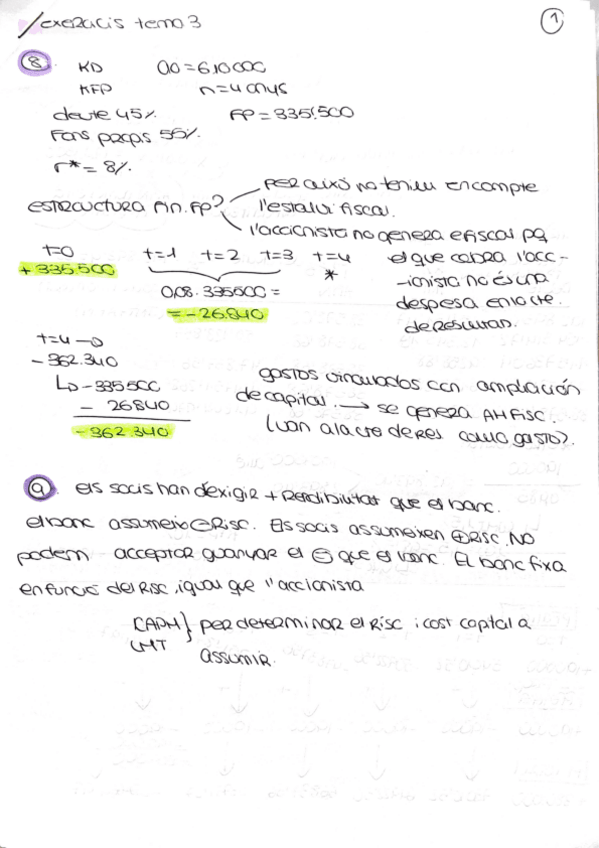 /exercicis tema 3
1
8 KD A0 = 610000
KFP n = 4 anys
deute 45% FP = 335.500
Fons propis 55%
r* = 8%
PER això no tenim en compte
ESTRUCTURA Fin. FP? l'estalvi fiscal.
l'accionista no genera efiscal pq
t=0 t=1 t=2 t=3 t=4 el que cobra l'acc-
+ 335.500 * -ionista no és una
0,08 · 335500 = despesa en la cte.
= - 26.840 de resultats.
t=4 →
- 362.340
↳ - 335500 gastos vinculados con ampliación
- 26840 de capital → se genera AH Fisc.
- 362.340 (van a la cte de res como gasto).
9 els socis han d'exigir + rendibilitat que el banc.
el banc assumeix ⊖ Risc. Els socis assumeixen ⊕ Risc, NO
poden acceptar guanyar el ⊖ que el banc. El banc fixa
en funció del Risc, igual que l'accionista
CAPM } per determinar el risc i cost capital a
LMT assumir.